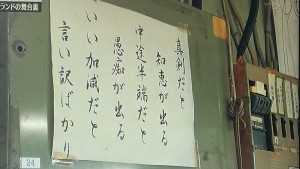 ランドの舞台裏
真剣だと
知恵が出る
中途半端だと
愚痴が出る
いい加減だと
言い訳ばかり
24